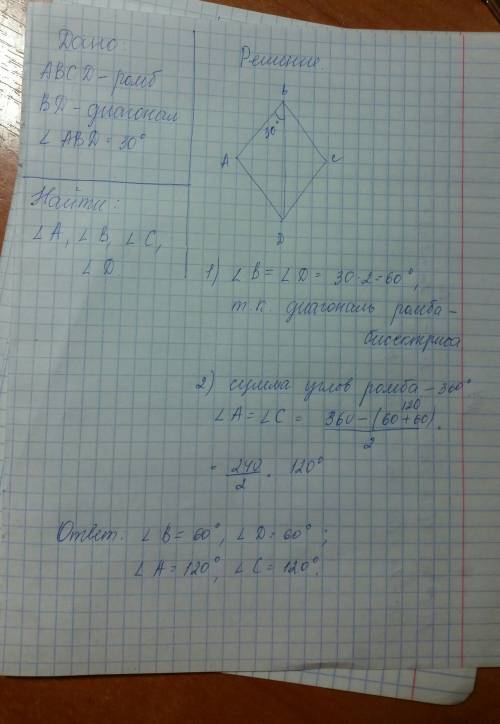 Дано:
ABCD - ромб
BD - диагонал
∠ ABD = 30°
Найти:
∠ A, ∠ B, ∠ C,
∠ D
Решение.
B
30°
A
C
D
1) ∠ B = ∠ D = 30 · 2 = 60°,
т.к. диагональ ромба -
биссектриса
2) сумма углов ромба - 360°
120
∠ A = ∠ C = 360 - (60 + 60) =
2
= 240 = 120°
2
Ответ: ∠ B = 60°, ∠ D = 60°;
∠ A = 120°, ∠ C = 120°.